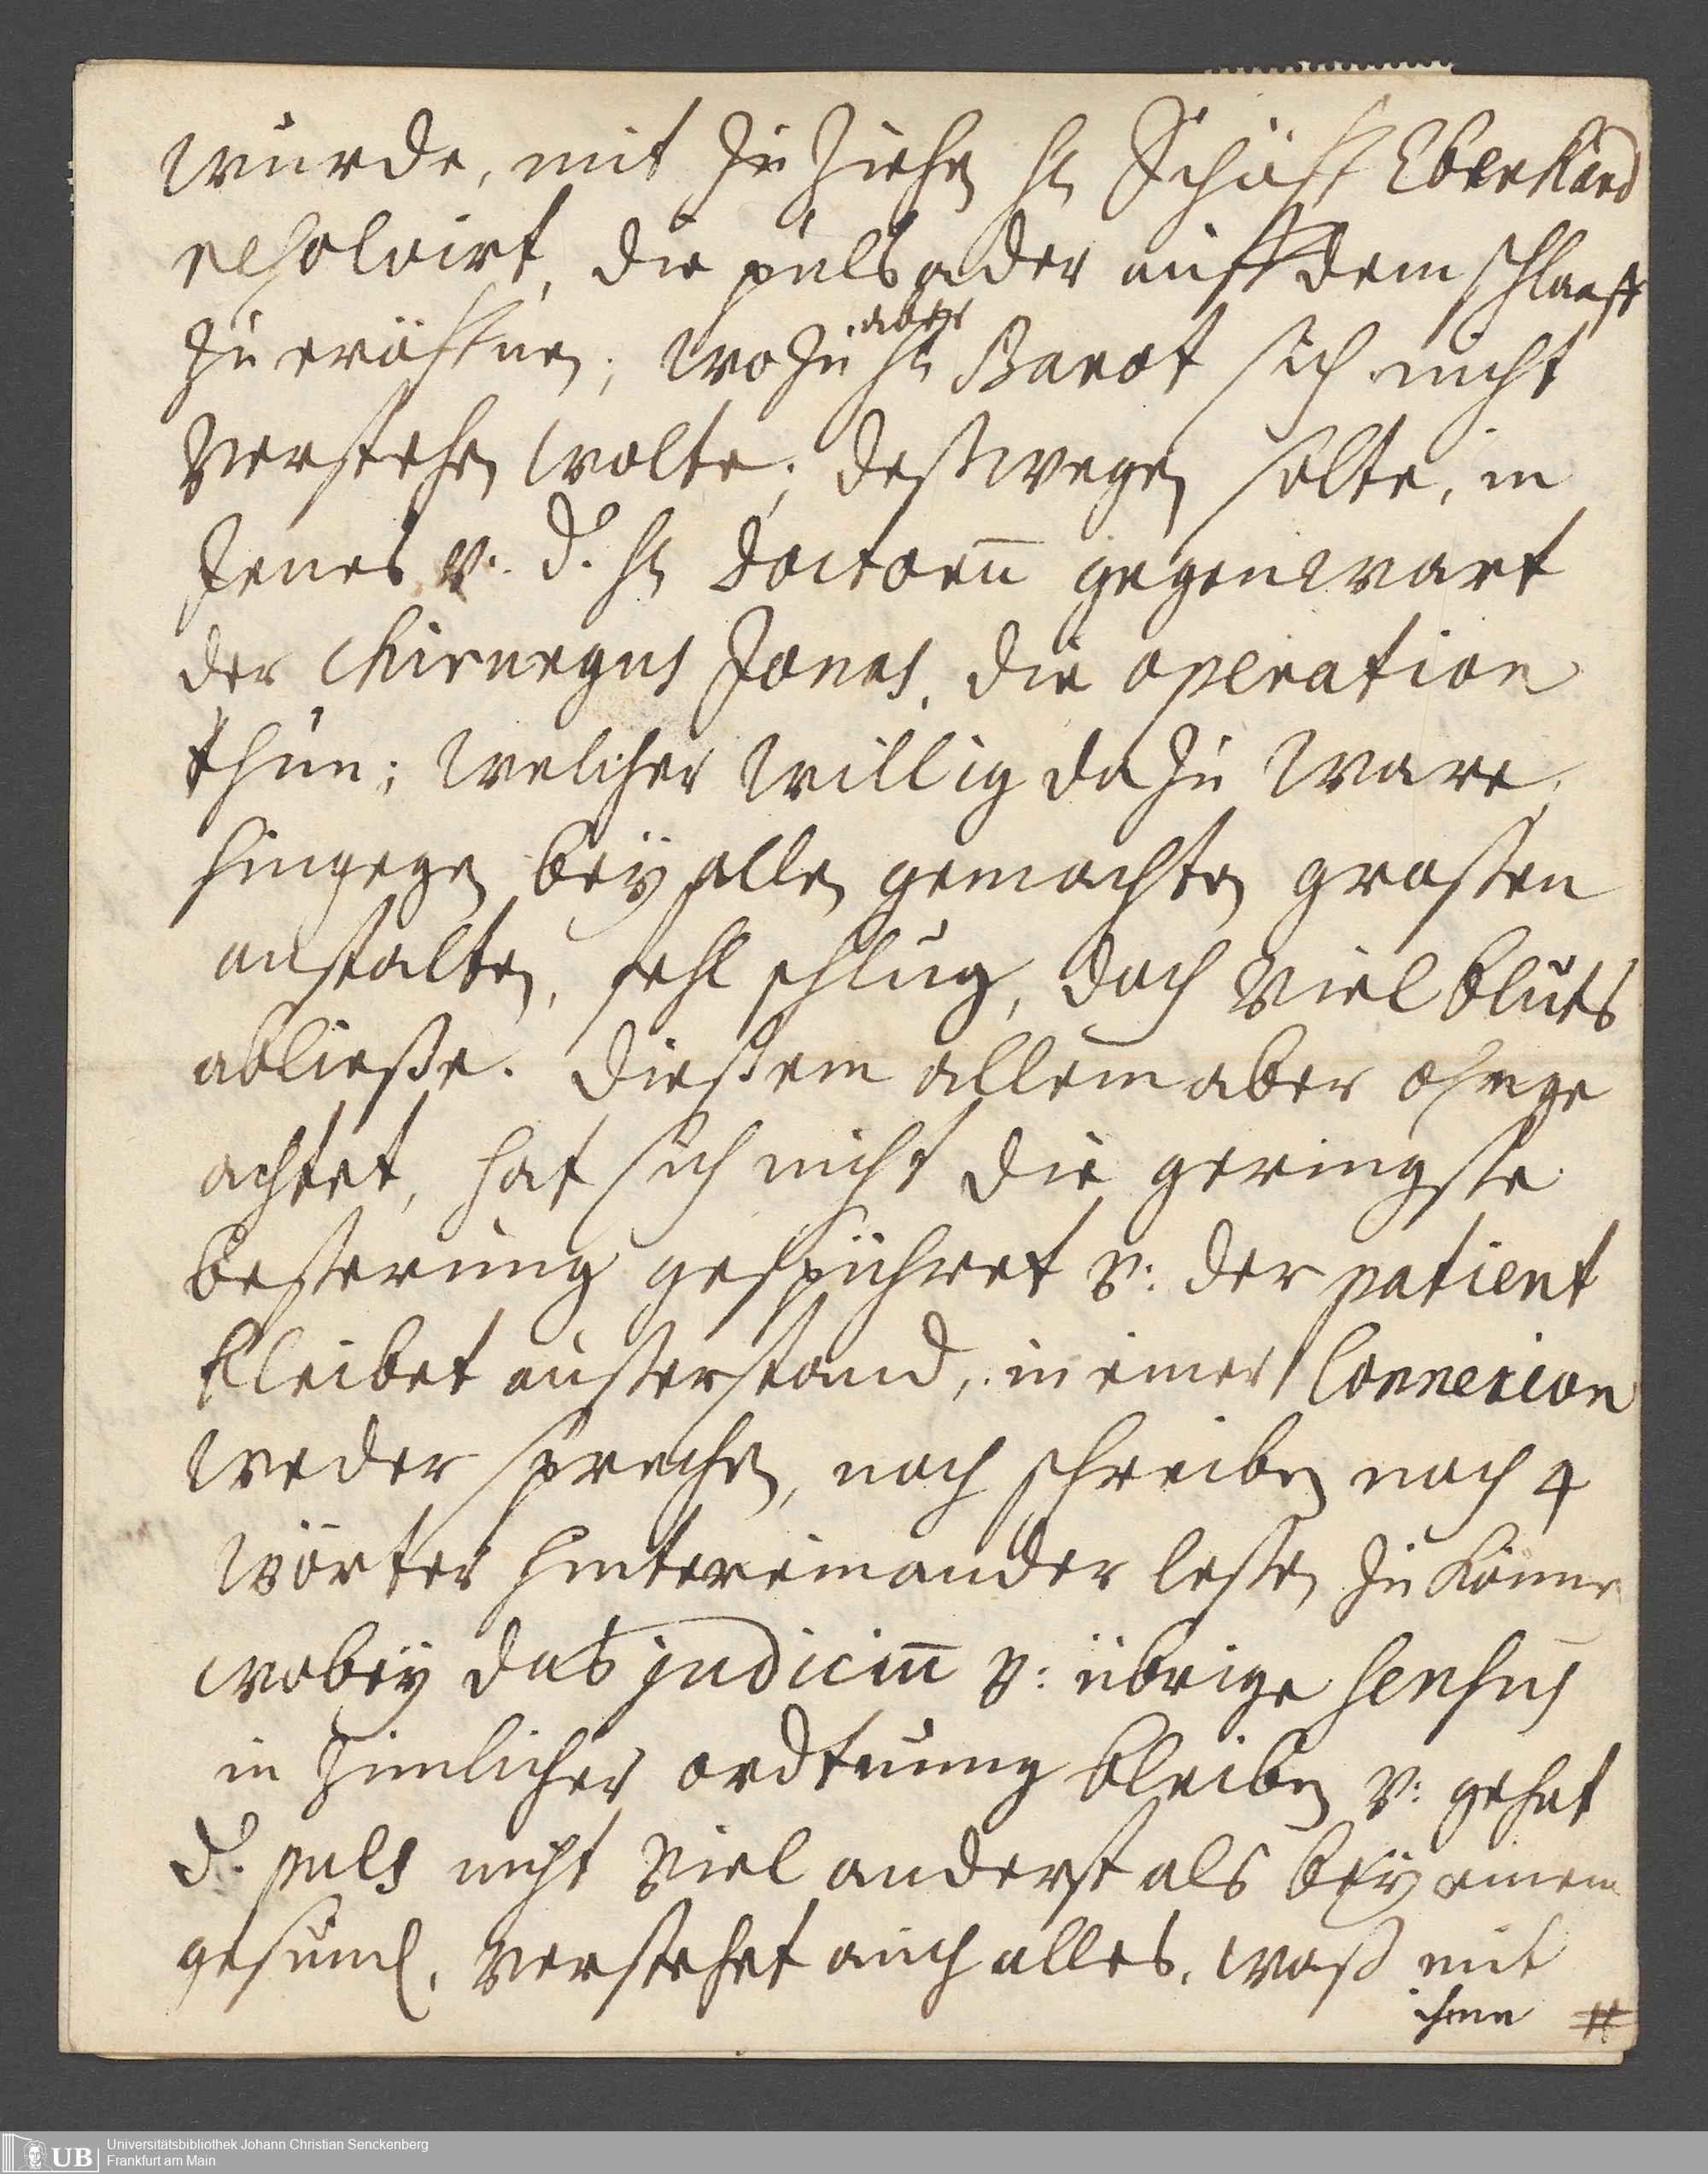 wurde, mit zu ziehen H. Schöff Eberhard
resolvirt, die pulsader auff dem schlaeff
zu eröffnen; wozu aber H. Barot sich nicht
verstehen wolte; deßwegen solte, in
Jenes v. d. H. Doctorū gegenwart
der Chirurgus Jonas, die operation
thun; welcher willig dazu ware,
hingegen bey allen gemachten grossen
anstalten, fehl schlug, doch viel bluts
abliesse. Diessem allem aber ohnge
achtet, hat sich nicht die geringste
besserung gespühret v: der patient
bleibet ausserstand, in einer Connexion
weder sprechen, noch schreiben noch 4
wörter hintereinander lessen zu können
wobey das judiciū v: übrige sensus
in zimlicher ordtnung bleiben v: gehet
d. puls nicht viel anderst als bey einem
gesund, verstehet auch alles, waß mit
ihme #
UB Universitätsbibliothek Johann Christian Senckenberg
Frankfurt am Main